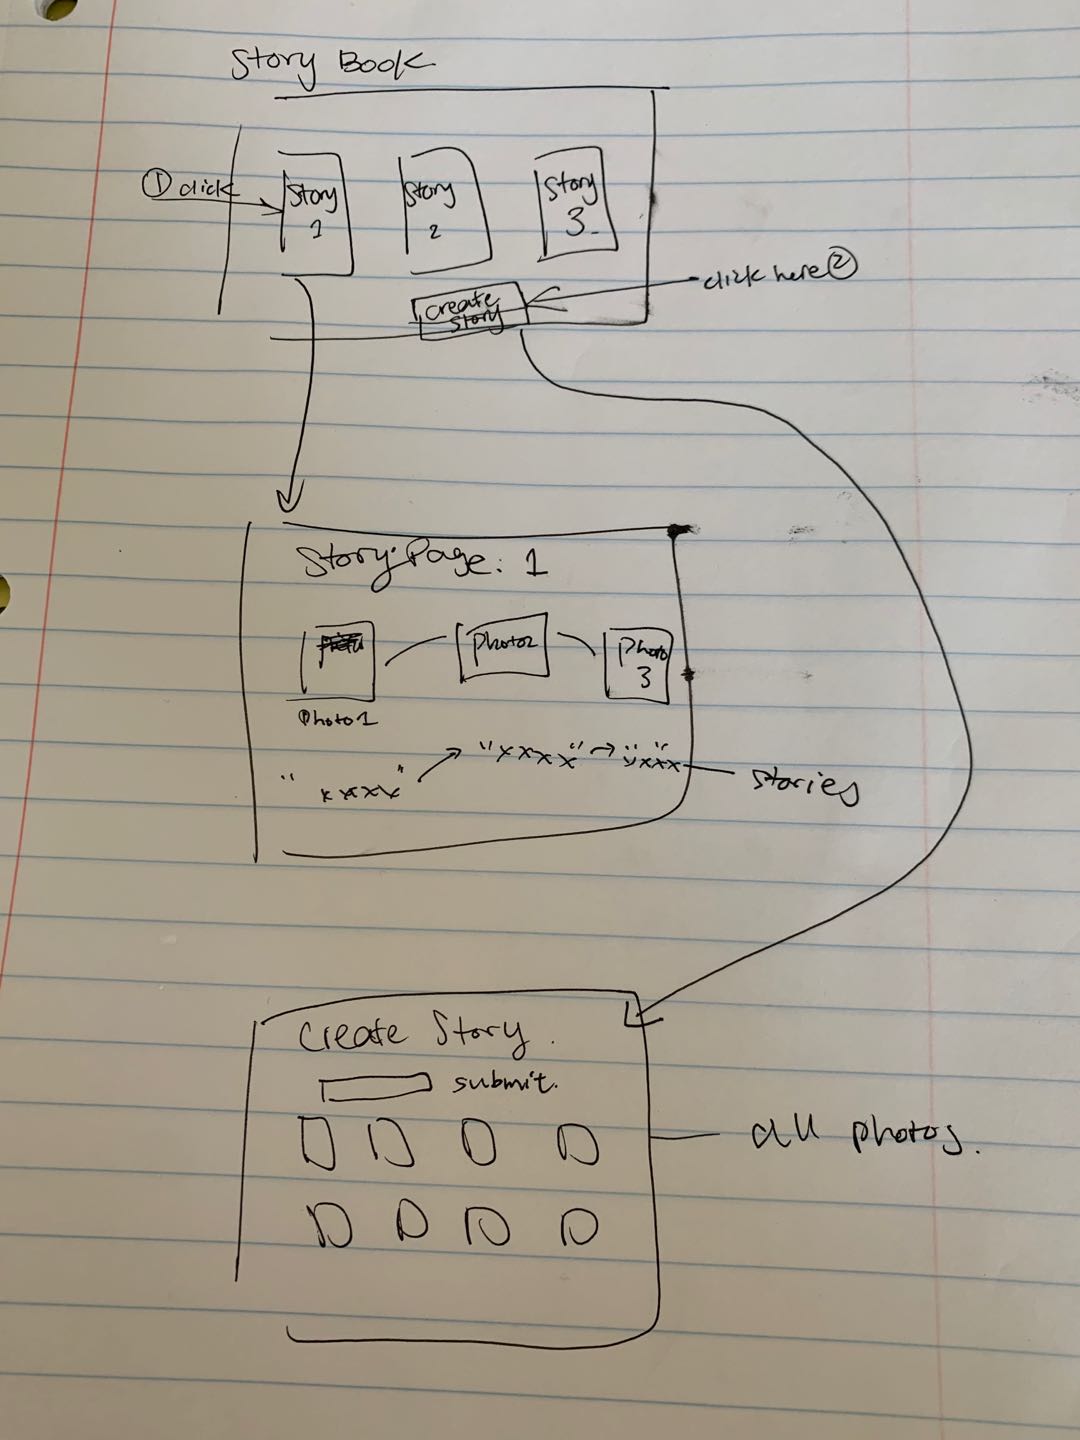 Story Book
① click
Story
1
Story
2
Story
3
create
story
click here ②
Story Page: 1
Photo2
Photo
3
Photo1
"xxxx"
"xxxx"
"xxxx"
stories
Create Story.
submit.
all photos.